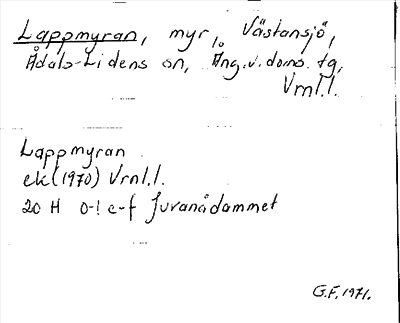 Lappmyran, myr, Västansjö,
Ådals-Lidens sn, Ång.v.doms. tg,
Vrnl.l.
Lappmyran
ek (1970) Vrnl.l.
20 H 0-1 e-f Juvanådammet
G.F. 1971.